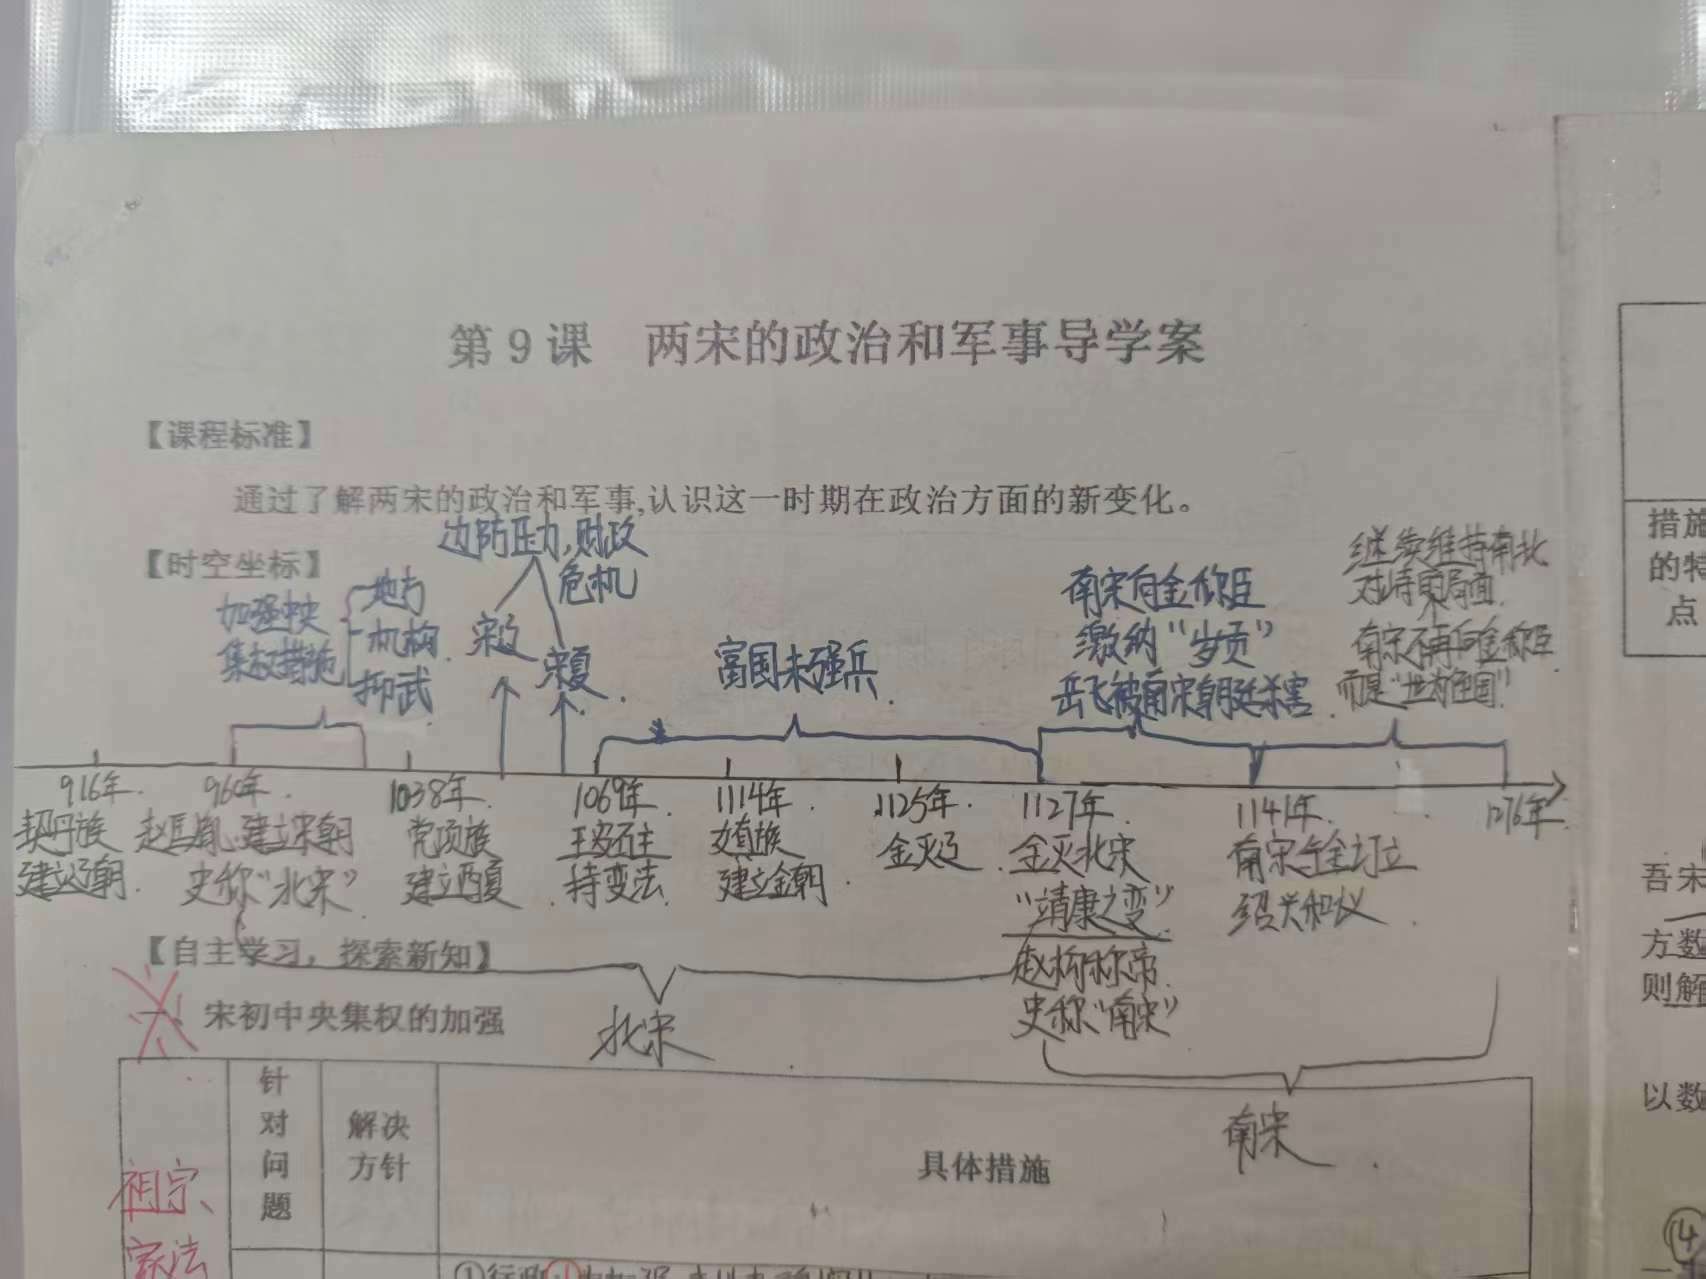 第9课 两宋的政治和军事导学案
【课程标准】
通过了解两宋的政治和军事,认识这一时期在政治方面的新变化。
【时空坐标】
边防压力,财政
危机
加强中央
集权措施
地方
机构
抑武
宋辽
宋夏
富国未强兵
南宋向金称臣
缴纳“岁贡”
岳飞被南宋朝廷杀害
继续维持南北
对峙局面
南宋不再向金称臣
而是“世为侄国”
916年
契丹族
建立辽朝
960年
赵匡胤建立宋朝
史称“北宋”
1038年
党项族
建立西夏
1069年
王安石主
持变法
1114年
女真族
建立金朝
1125年
金灭辽
1127年
金灭北宋
“靖康之变”
赵构称帝
史称“南宋”
1141年
南宋与金订立
绍兴和议
1276年
【自主学习，探索新知】
一、宋初中央集权的加强
北宋
南宋
祖宗
家法
针对问题
解决
方针
具体措施
措施
的特
点
吾宋
方数
则解
以数
④